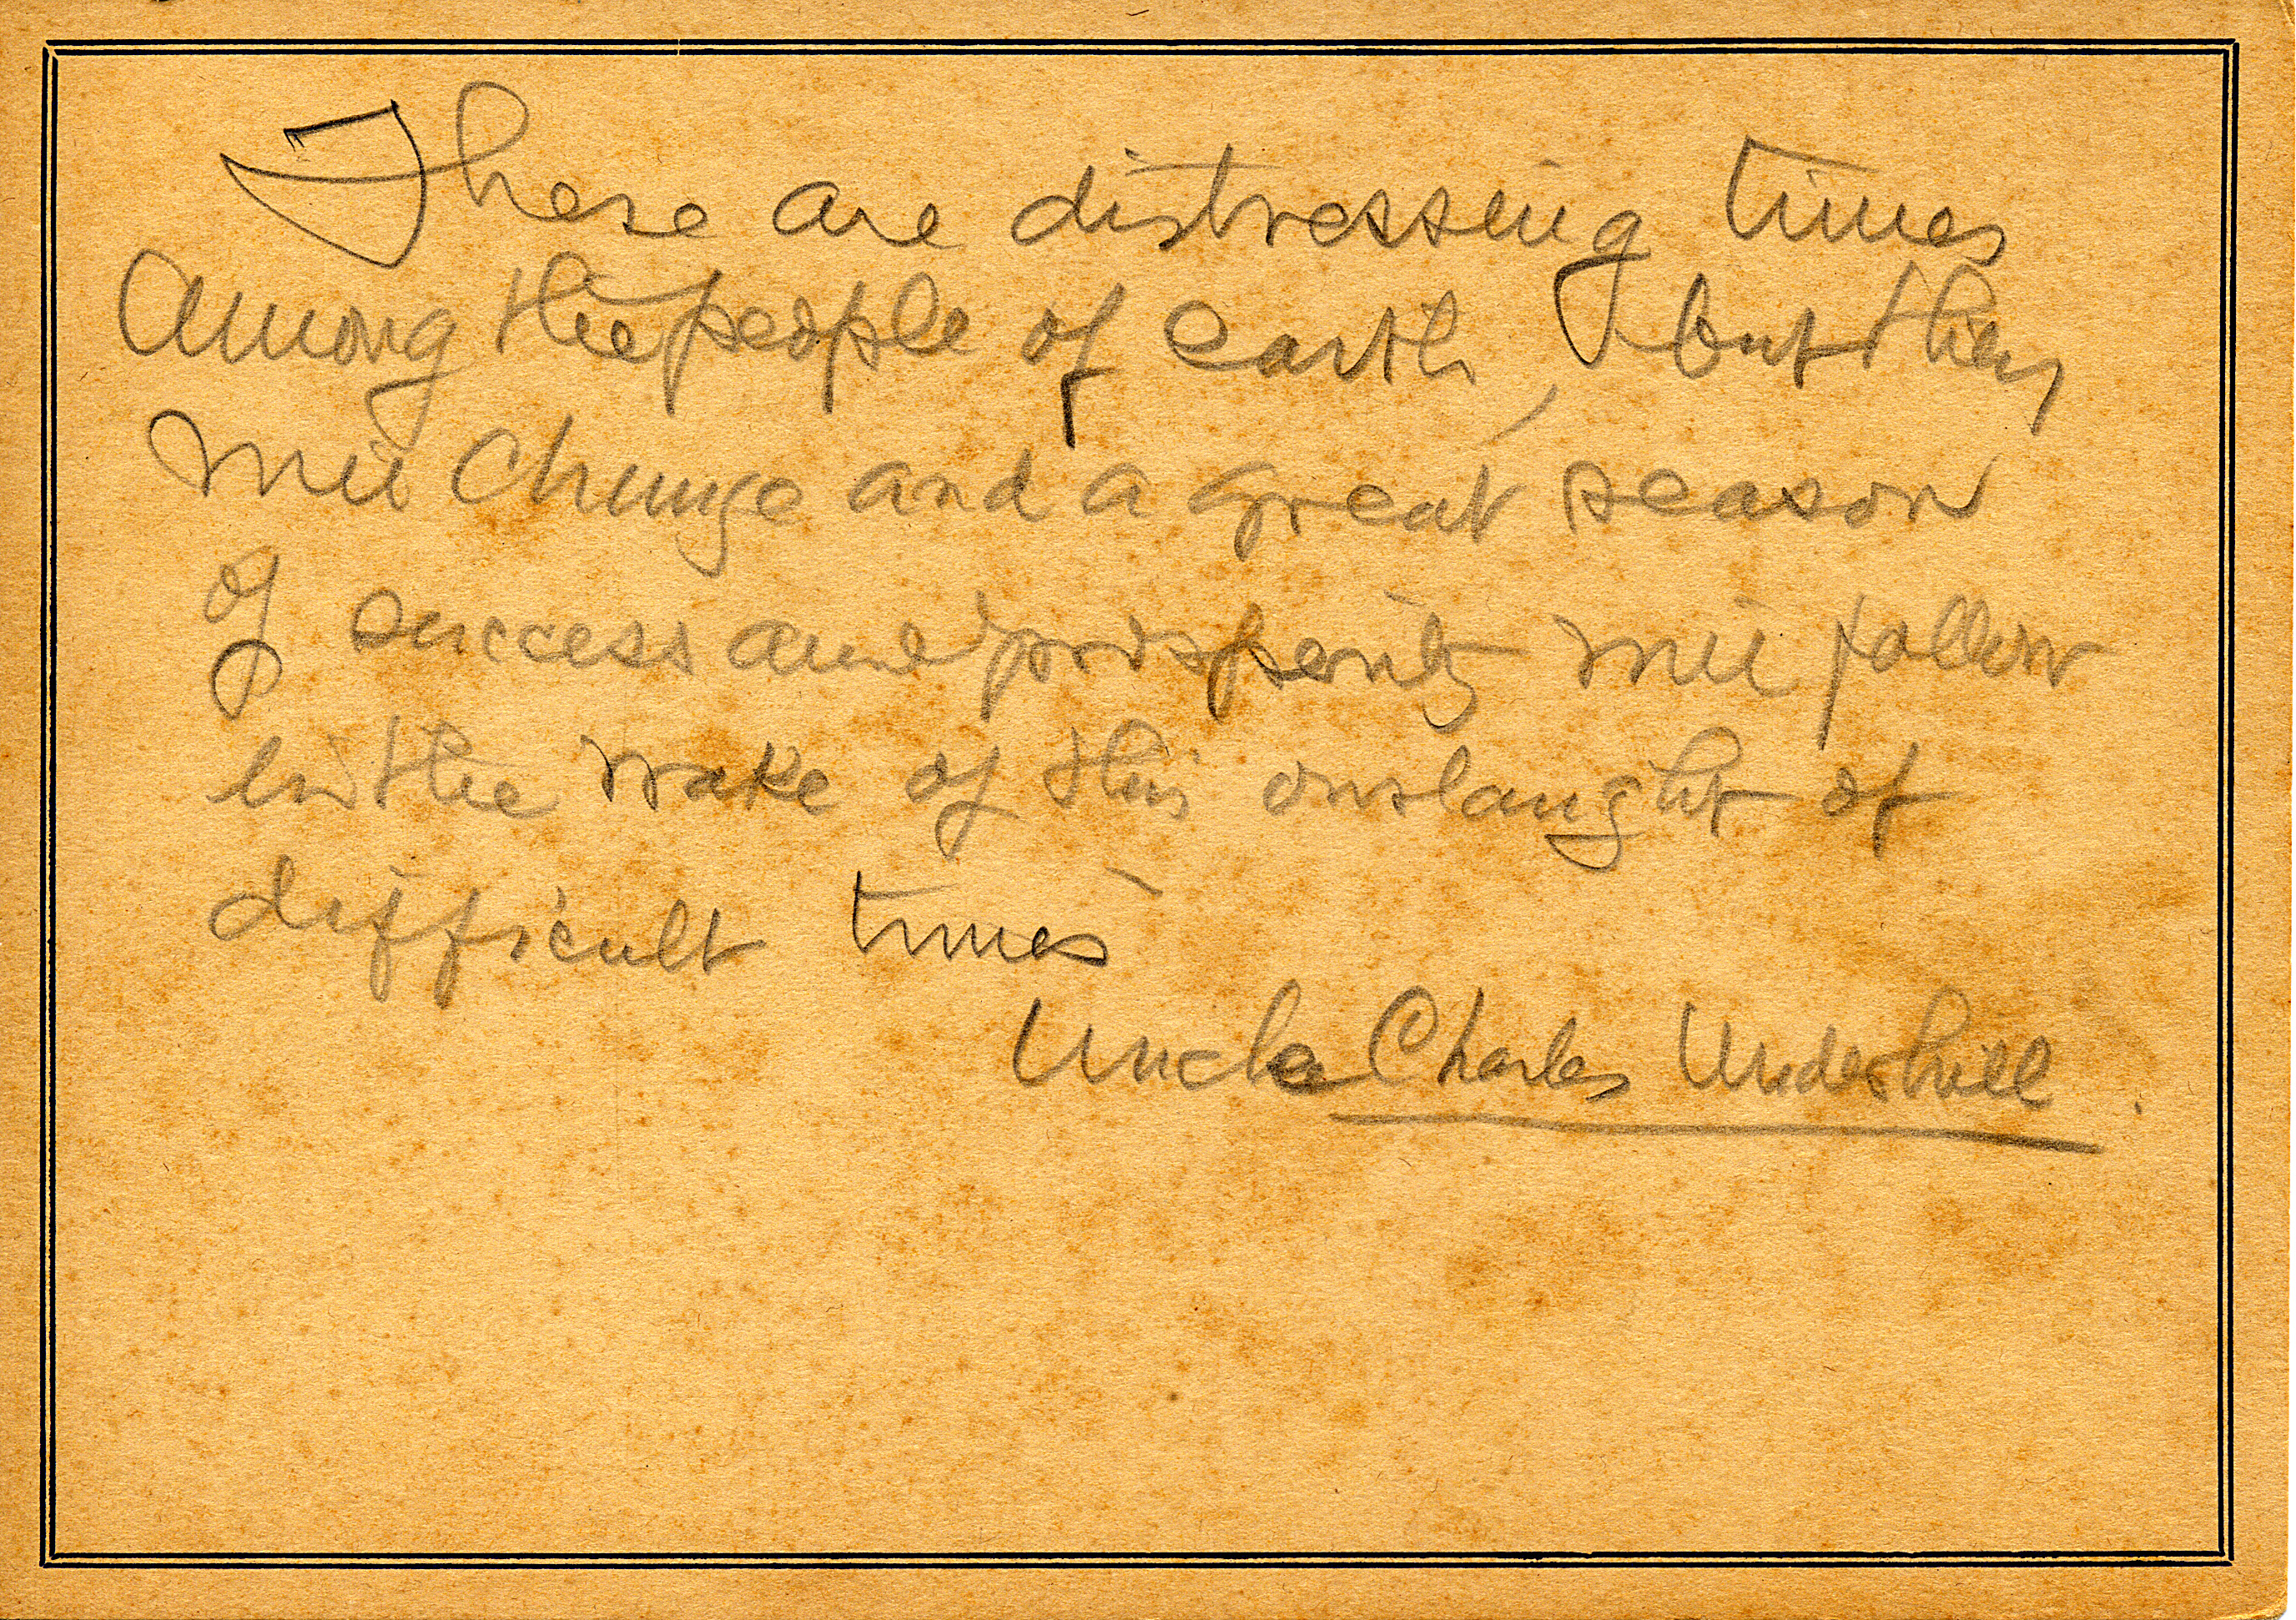 These are distressing times
among the people of earth, but they
will change and a great season
of success and prosperity will follow
in the wake of this onslaught of
difficult times
Uncle Charles Underhill.